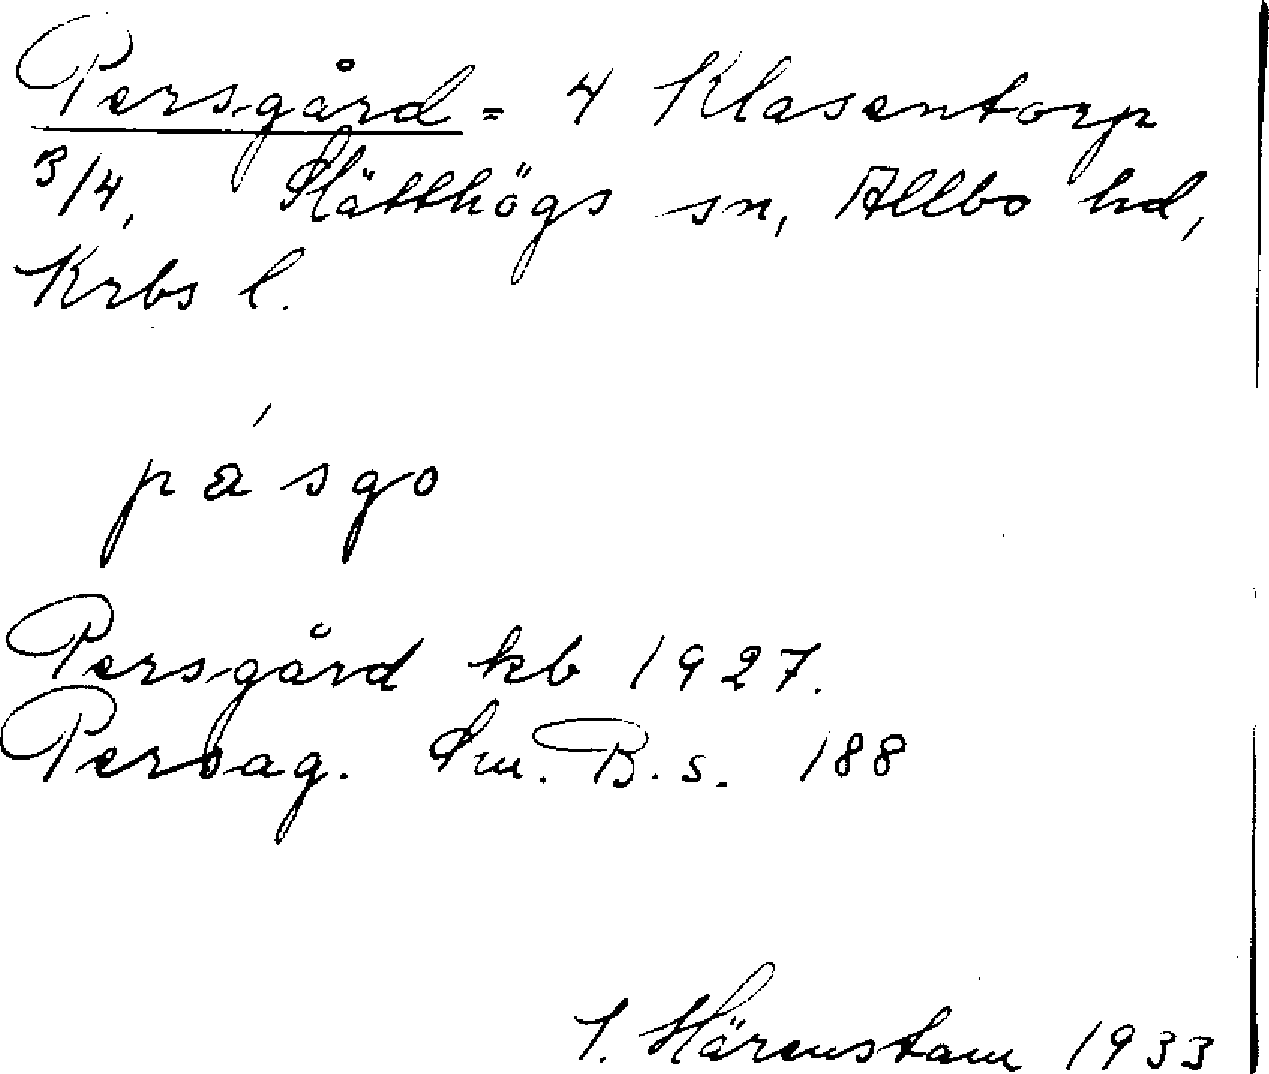 Persgård = 4 Klasentorp
3/4, Slätthögs sn, Allbo hd,
Krbs l.
pásgo
Persgård kb 1927.
Persag. Sm. B. s. 188
I. Härenstam 1933